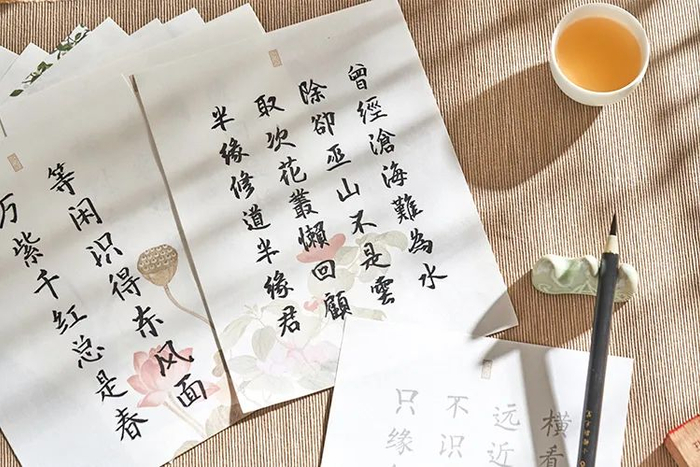 曾經滄海難為水
除卻巫山不是雲
取次花叢懶回顧
半緣修道半緣君
等闲识得东风面
万紫千红总是春
横看
远近
不识
只缘